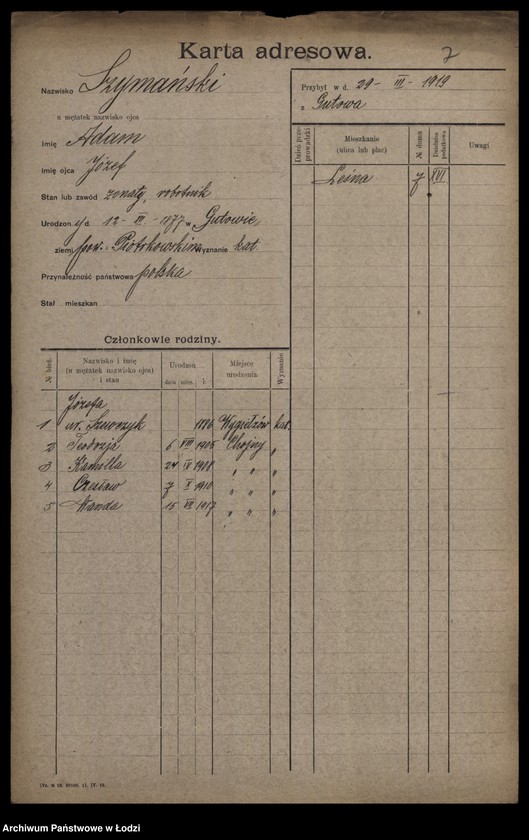 Karta adresowa. 7
Nazwisko Szymański
u mężatek nazwisko ojca
Imię Adam
Imię ojca Józef
Stan lub zawód żonaty, robotnik
Urodzon y d. 12-III-1877 w Gutowie
ziemi pow. Piotrkowskim wyznanie kat
Przynależność państwowa polska
Stał mieszkan
Przybył w d. 29-III-1919
z Gutowa
Dzień przeprowadzki
Mieszkanie
(ulica lub plac)
№ domu
Dzielnica
Uwagi
Leśna 7 XVI
Członkowie rodziny.
№ bież.
Nazwisko i imię
(u mężatek nazwisko ojca)
i stan
Urodzon
dnia mies. r.
Miejsce
urodzenia
Wyznanie
Józefa
1 ur. 1886 kat.
2 Teodozja 6 VIII 1905 Chojny "
3 Kamilla 24 IV 1908 " " "
4 Czesław 7 X 1910 " " "
5 Wanda 15 VII 1917 " " "
Archiwum Państwowe w Łodzi